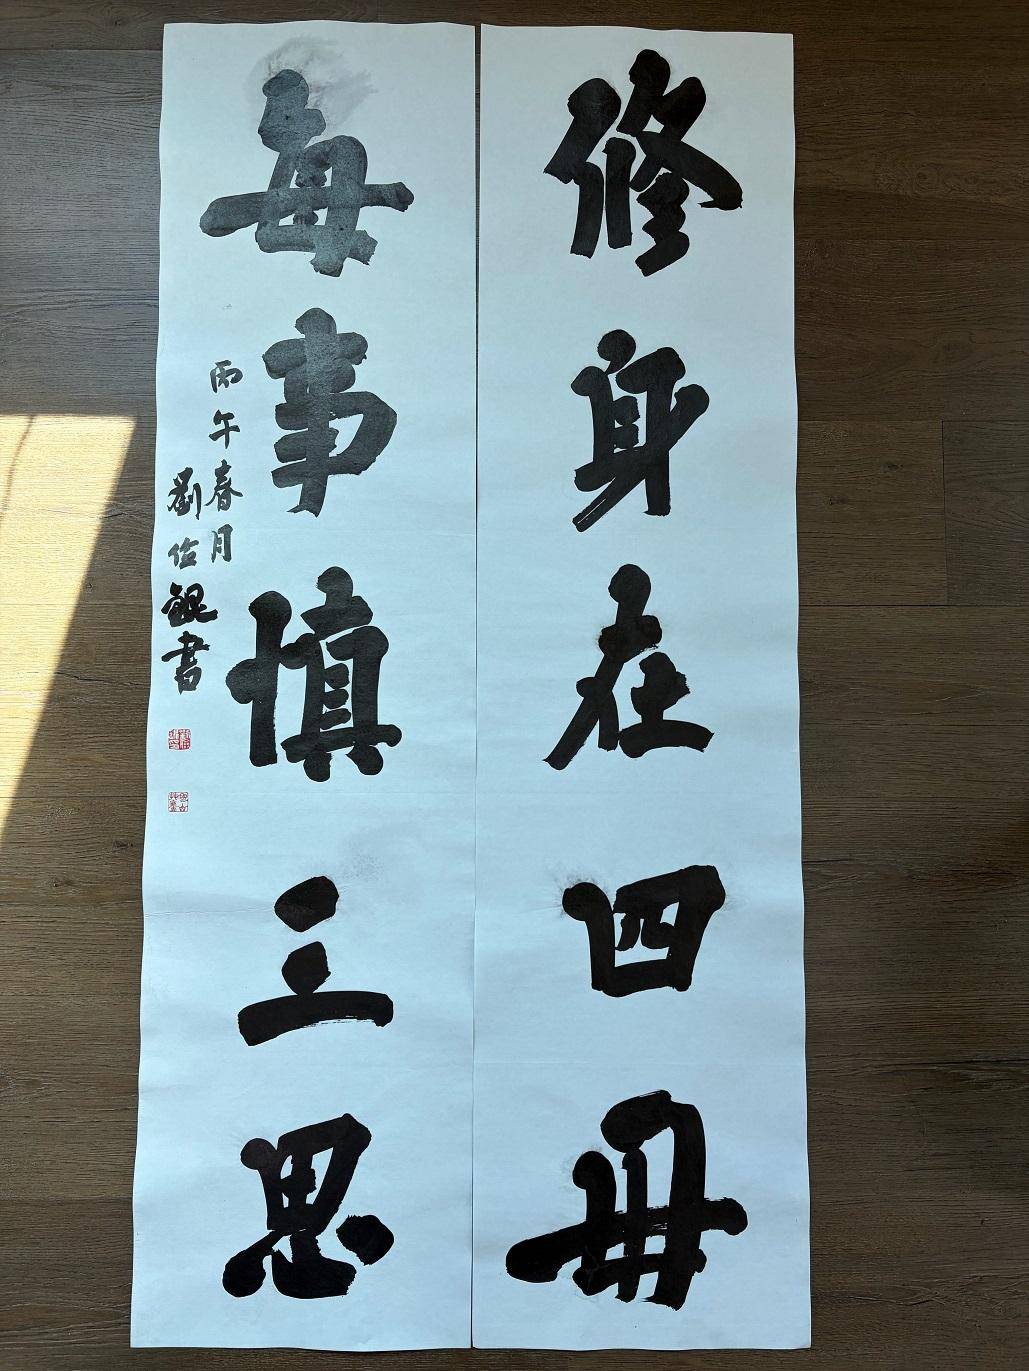 修身在四冊
每事慎三思
丙午春月
劉 書